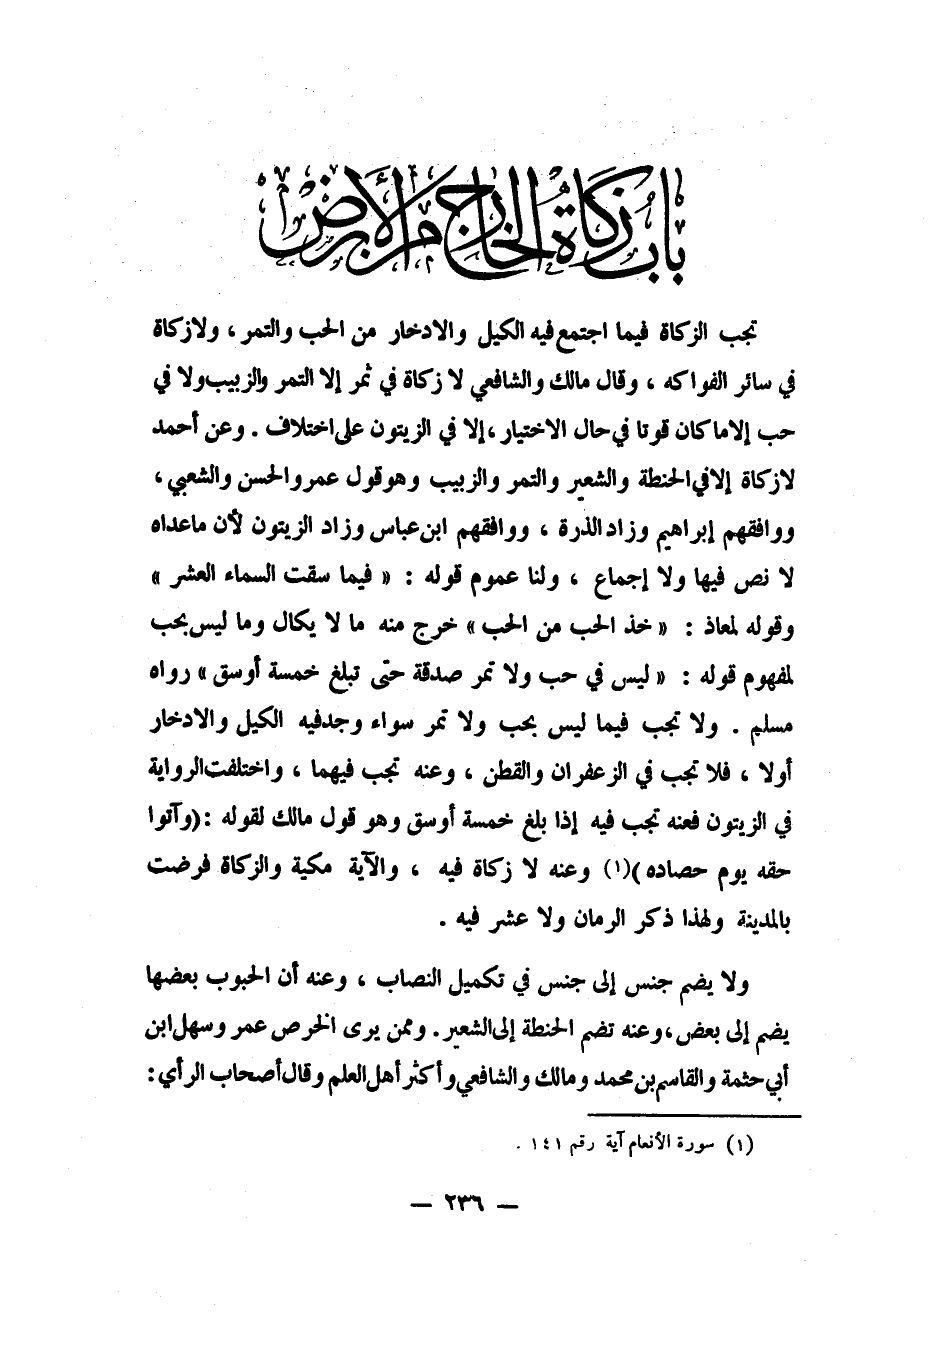 باب زكاة الخارج من الأرض
تجب الزكاة فيما اجتمع فيه الكيل والادخار من الحب والتمر ، ولا زكاة
في سائر الفواكه ، وقال مالك والشافعي لا زكاة في ثمر إلا التمر والزبيب ولا في
حب إلا ما كان قوتا في حال الاختيار ، إلا في الزيتون على اختلاف . وعن أحمد
لا زكاة إلا في الحنطة والشعير والتمر والزبيب وهو قول عمر والحسن والشعبي ،
ووافقهم إبراهيم وزاد الذرة ، ووافقهم ابن عباس وزاد الزيتون لأن ما عداه
لا نص فيها ولا إجماع ، ولنا عموم قوله : « فيما سقت السماء العشر »
وقوله لمعاذ : « خذ الحب من الحب » خرج منه ما لا يكال وما ليس بحب
لمفهوم قوله : « ليس في حب ولا تمر صدقة حتى تبلغ خمسة أوسق » رواه
مسلم . ولا تجب فيما ليس بحب ولا تمر سواء وجد فيه الكيل والادخار
أولا ، فلا تجب في الزعفران والقطن ، وعنه تجب فيهما ، واختلفت الرواية
في الزيتون فعنه تجب فيه إذا بلغ خمسة أوسق وهو قول مالك لقوله : (وآتوا
حقه يوم حصاده) (١) وعنه لا زكاة فيه ، والآية مكية والزكاة فرضت
بالمدينة ولهذا ذكر الرمان ولا عشر فيه .
ولا يضم جنس إلى جنس في تكميل النصاب ، وعنه أن الحبوب بعضها
يضم إلى بعض ، وعنه تضم الحنطة إلى الشعير . وممن يرى الخرص عمر وسهل ابن
أبي حثمة والقاسم بن محمد ومالك والشافعي وأكثر أهل العلم وقال أصحاب الرأي :
(١) سورة الأنعام آية رقم ١٤١ .
— ٢٣٦ —